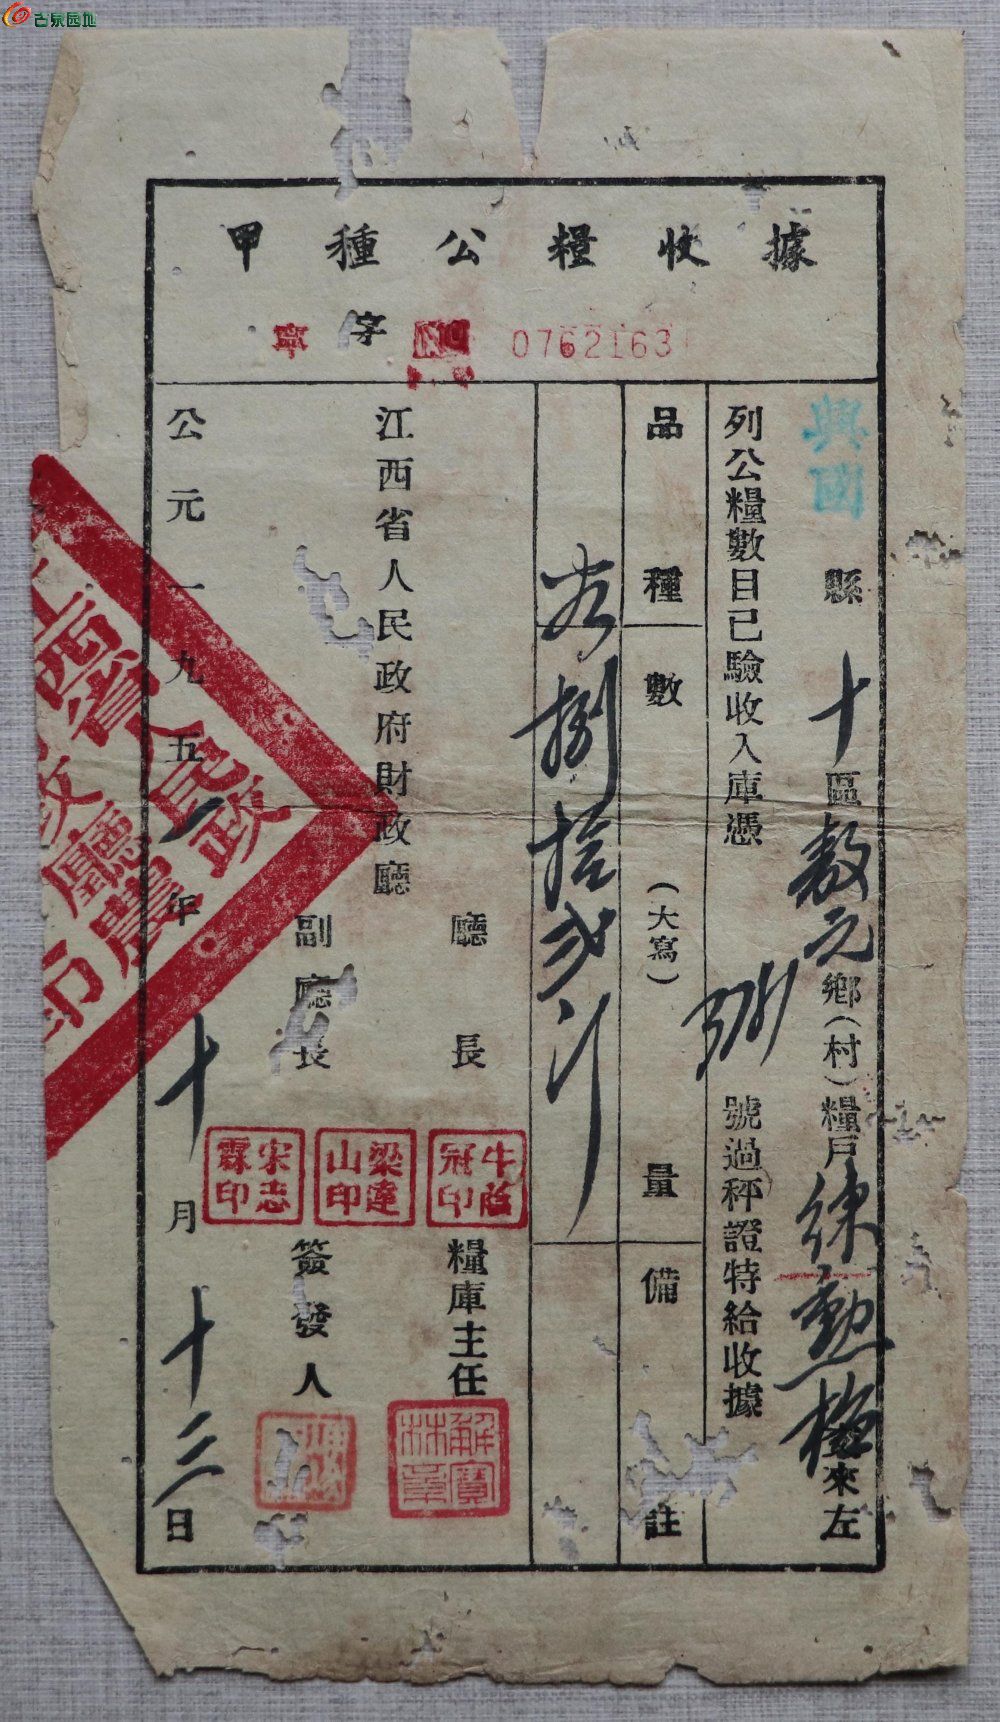 古泉园地
甲種公糧收據
寧字 NO 0762163
興國縣十區敖元鄉(村)糧戶練勳梅來左
列公糧數目已驗收入庫憑 號過秤證特給收據
品種 數量(大寫) 備註
谷 捌拾弍斤
廳長 牛蔭冠印 糧庫主任 解寶林章
江西省人民政府財政廳
梁達山印
副廳長 宋志霖印 簽發人
公元一九五一年十月十二日